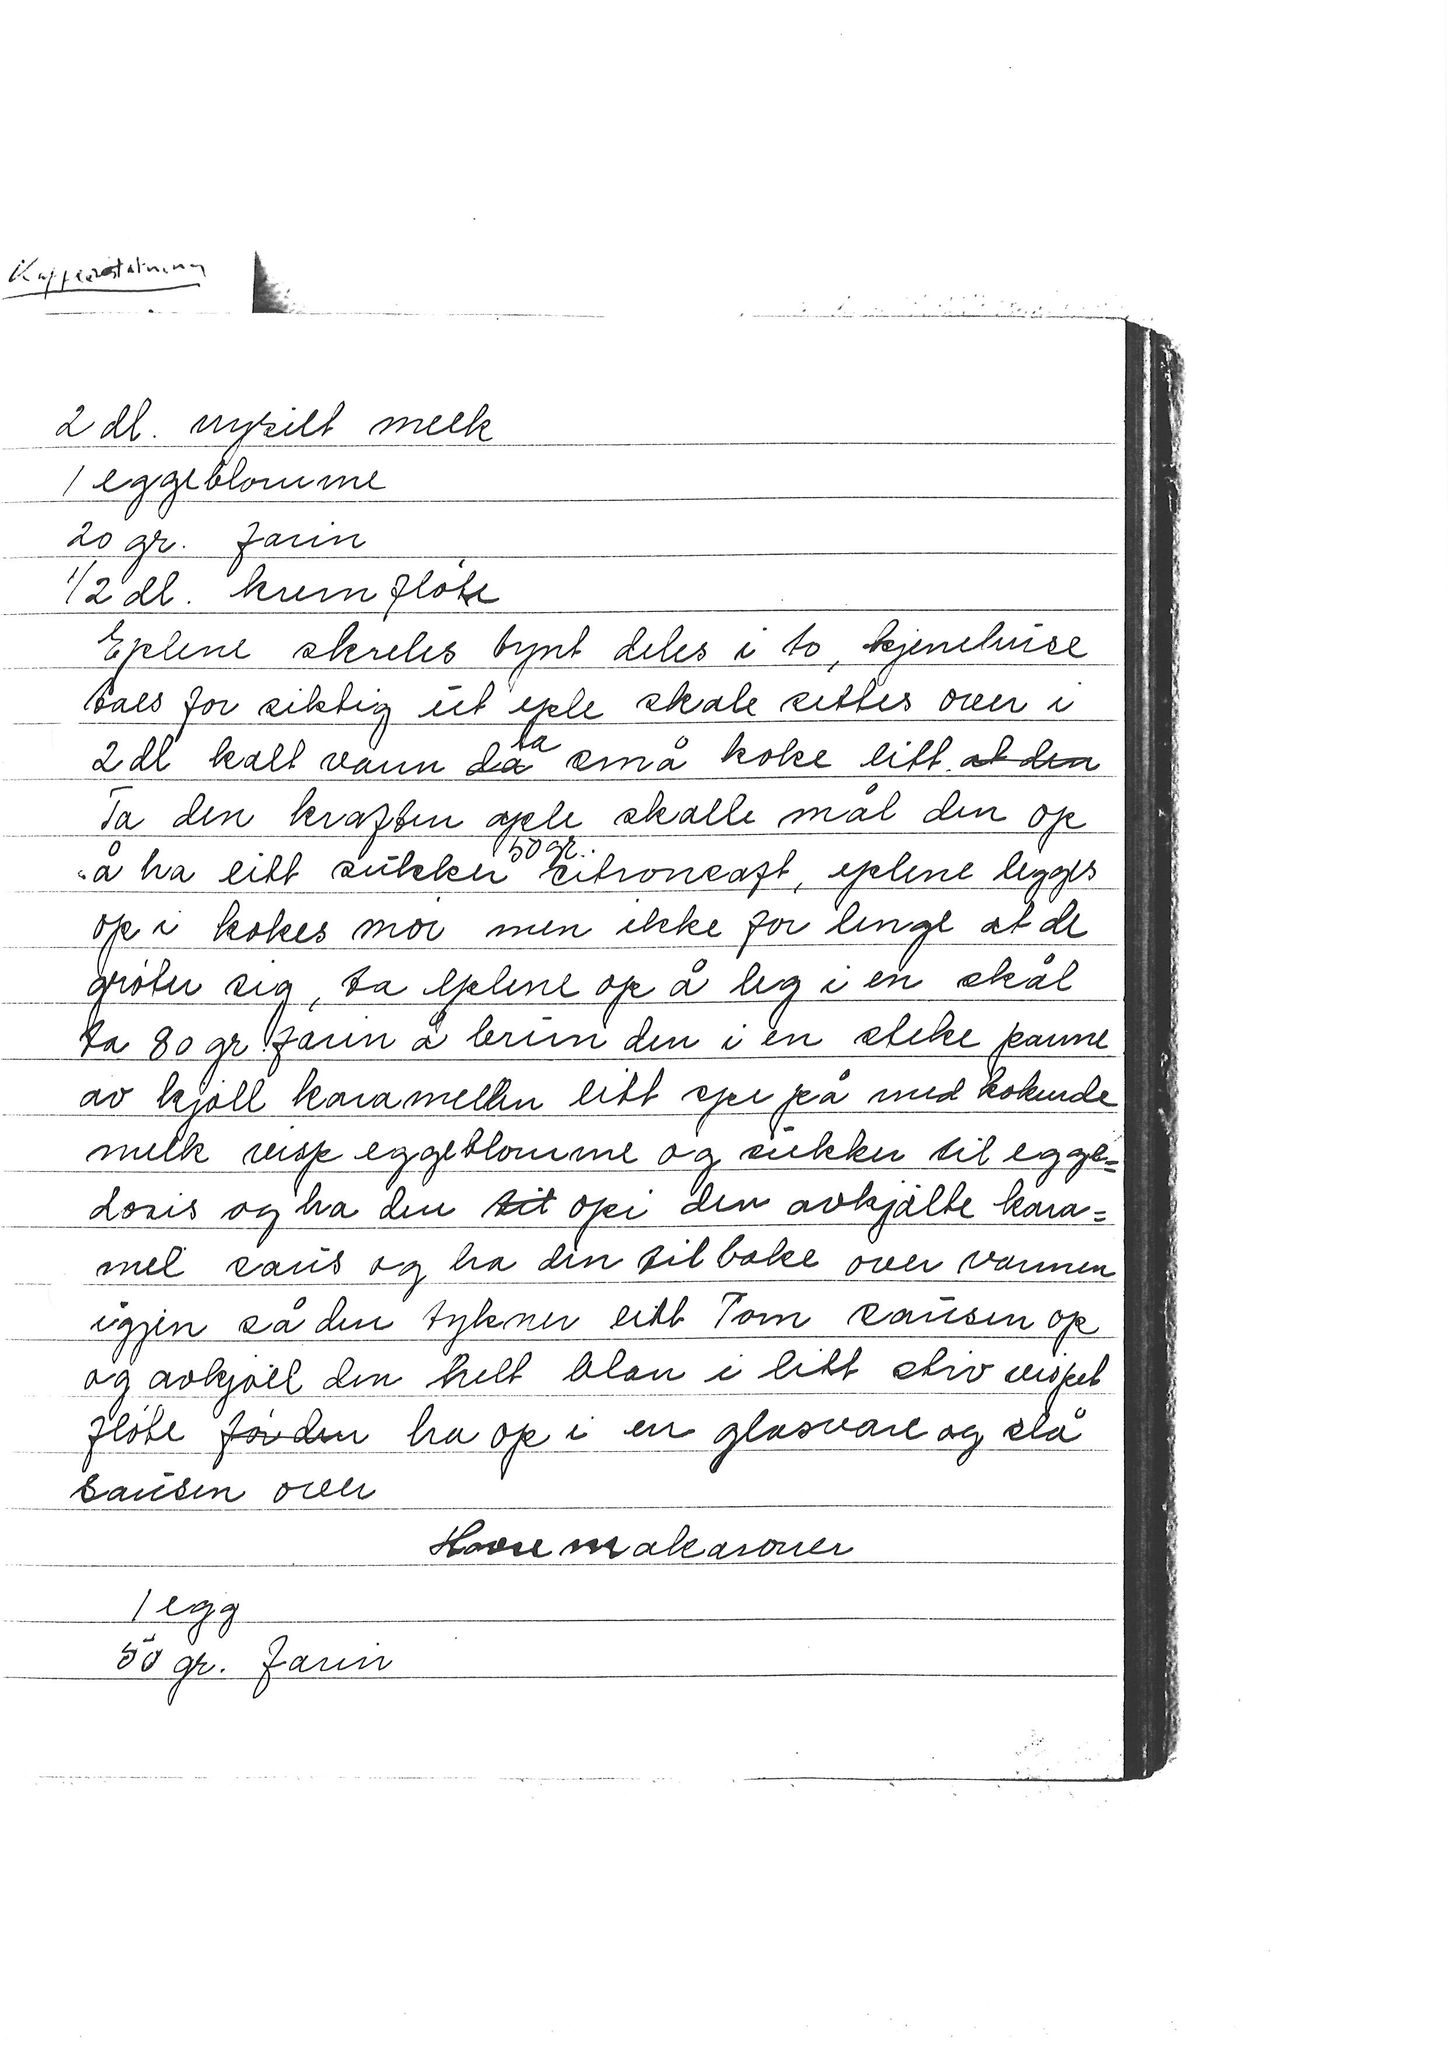 Kaffeerstatning
2 dl. nysilt melk
1 eggeblomme
20 gr. farin
1/2 dl. krem fløte
Eplene skreles tynt deles i to, kjenehuse
taes for siktig ut eple skale settes over i
2 dl kalt vann da ta små koke litt. at den
Ta den kraften eple skalle mål den op
å ha litt sukker 50 gr. citronsaft, eplene legges
op i kokes mør men ikke for lenge at de
grøter sig, ta eplene op å leg i en skål
ta 80 gr. farin å brun den i en steke panne
av kjøll karamellen litt spe på med kokende
melk visp eggeblomme og sukker til egge=
dosis og ha den til opi den avkjølte kara=
mel saus og ha den tilbake over varmen
igjen så den tykner litt Tøm sausen op
og avkjøll den helt blan i litt stiv vispet
fløte før den ha op i en glasvase og slå
sausen over
Havre makaroner
1 egg
50 gr. farin